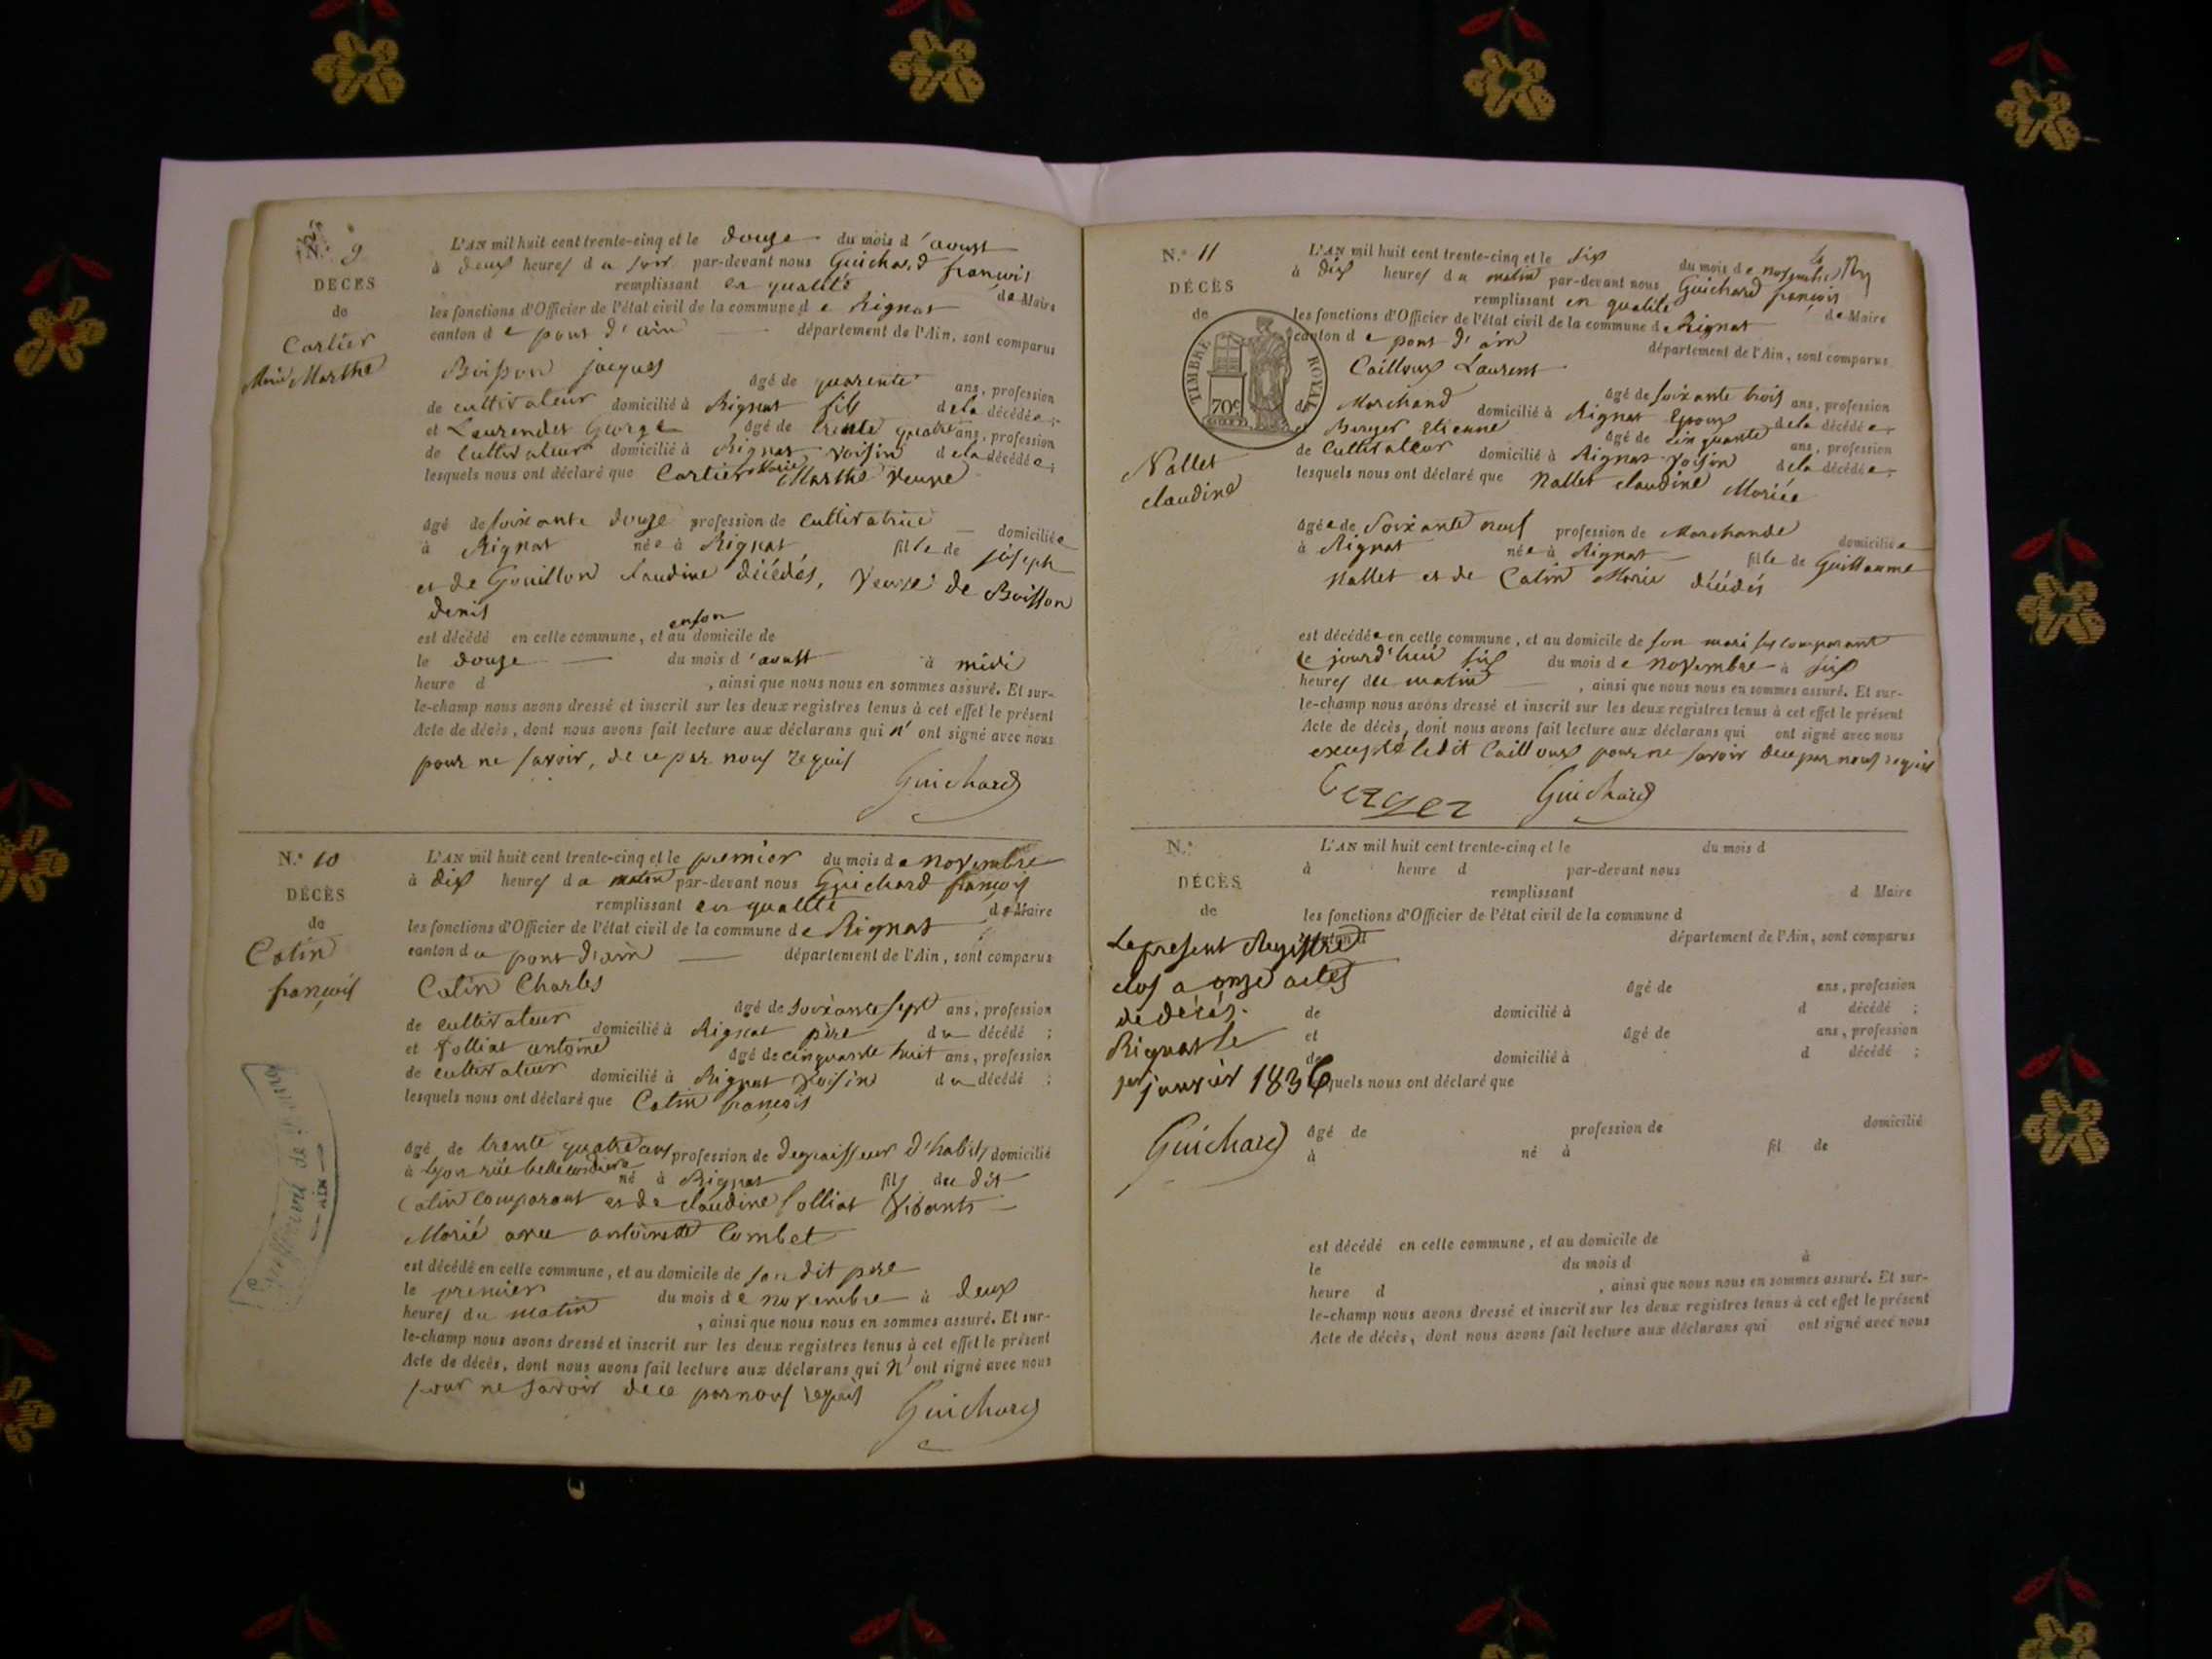 N.° 9
DÉCÈS
de
Cartier
Marie Marthe
L'AN mil huit cent trente-cinq et le douze du mois d'aoust
à deux heures du soir par-devant nous Guichard françois
remplissant en qualité de Maire
les fonctions d'Officier de l'état civil de la commune de Rignat
canton de pont d'ain département de l'Ain, sont comparus
Boisson jacques
âgé de quarente ans, profession
de cultivateur domicilié à Rignat fils de la décédée;
et Laurendet George âgé de trente quatre ans, profession
de cultivateur domicilié à Rignat voisin de la décédée;
lesquels nous ont déclaré que Cartier Marie Marthe veuve
âgé de soixante douze profession de cultivatrice domiciliée
à Rignat née à Rignat fille de joseph
et de Gouillon claudine décédés, veuve de Boisson
denis
est décédé en celle commune, et au domicile de enson
le douze du mois d'aoust à midi
heure d , ainsi que nous nous en sommes assuré. Et sur-
le-champ nous avons dressé et inscrit sur les deux registres tenus à cet effet le présent
Acte de décès, dont nous avons fait lecture aux déclarans qui n'ont signé avec nous
pour ne savoir, de ce par nous requis
Guichard
N.° 10
DÉCÈS
de
Catin
françois
L'AN mil huit cent trente-cinq et le premier du mois de novembre
à dix heures du matin par-devant nous Guichard françois
remplissant en qualité de Maire
les fonctions d'Officier de l'état civil de la commune de Rignat
canton du pont d'ain département de l'Ain, sont comparus
Catin Charles
âgé de soixante sept ans, profession
de cultivateur domicilié à Rignat père du décédé ;
et folliat antoine âgé de cinquante huit ans, profession
de cultivateur domicilié à Rignat voisin du décédé ;
lesquels nous ont déclaré que Catin françois
âgé de trente quatre ans profession de degraisseur d'habits domicilié
à Lyon rüe belle cordiere né à Rignat fils du dit
Catin comparant et de claudine folliat vivants
Marié avec antoinette Combet
est décédé en celle commune, et au domicile de son dit pere
le premier du mois de novembre à deux
heures du matin , ainsi que nous nous en sommes assuré. Et sur-
le-champ nous avons dressé et inscrit sur les deux registres tenus à cet effet le présent
Acte de décès, dont nous avons fait lecture aux déclarans qui n'ont signé avec nous
pour ne savoir de ce par nous requis
Guichard
AIN
N.° 11
DÉCÈS
de
TIMBRE ROYAL
70 c
Nallet
claudine
L'AN mil huit cent trente-cinq et le six du mois de novembre
à dix heures du matin par-devant nous Guichard françois
remplissant en qualité de Maire
les fonctions d'Officier de l'état civil de la commune de Rignat
canton de pont d'ain département de l'Ain, sont comparus
Cailloux Laurent
âgé de soixante trois ans, profession
de Marchand domicilié à Rignat Epoux de la décédée;
et Berger Etienne âgé de cinquante ans, profession
de Cultivateur domicilié à Rignat voisin de la décédée;
lesquels nous ont déclaré que Nallet claudine Mariée
âgée de Soixante neuf profession de Marchande domiciliée
à Rignat née à Rignat fille de Guillaume
Nallet et de Catin Marie décédés
est décédée en celle commune, et au domicile de son mari sus comparant
le jourd'hui six du mois de novembre à six
heures du matin , ainsi que nous nous en sommes assuré. Et sur-
le-champ nous avons dressé et inscrit sur les deux registres tenus à cet effet le présent
Acte de décès, dont nous avons fait lecture aux déclarans qui ont signé avec nous
excepté ledit Cailloux pour ne savoir de ce par nous requis
Berger Guichard
N.°
DÉCÈS
de
Le present Registre
clos a onze actes
de décès.
Rignat le
1er janvier 1836
Guichard
L'AN mil huit cent trente-cinq et le du mois d
à heure d par-devant nous
remplissant d Maire
les fonctions d'Officier de l'état civil de la commune d
canton d département de l'Ain, sont comparus
âgé de ans, profession
de domicilié à d décédé ;
et âgé de ans, profession
de domicilié à d décédé ;
lesquels nous ont déclaré que
âgé de profession de domicilié
à né à fil de
est décédé en celle commune, et au domicile de
le du mois d à
heure d , ainsi que nous nous en sommes assuré. Et sur-
le-champ nous avons dressé et inscrit sur les deux registres tenus à cet effet le présent
Acte de décès, dont nous avons fait lecture aux déclarans qui ont signé avec nous